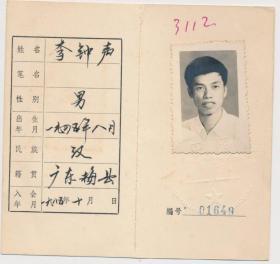 姓名 李钟声
笔名
性别 男
出生年月 一九四五年八月
民族 汉
籍贯 广东梅县
入会年月 一九八五年十月 日
3112
编号 01649